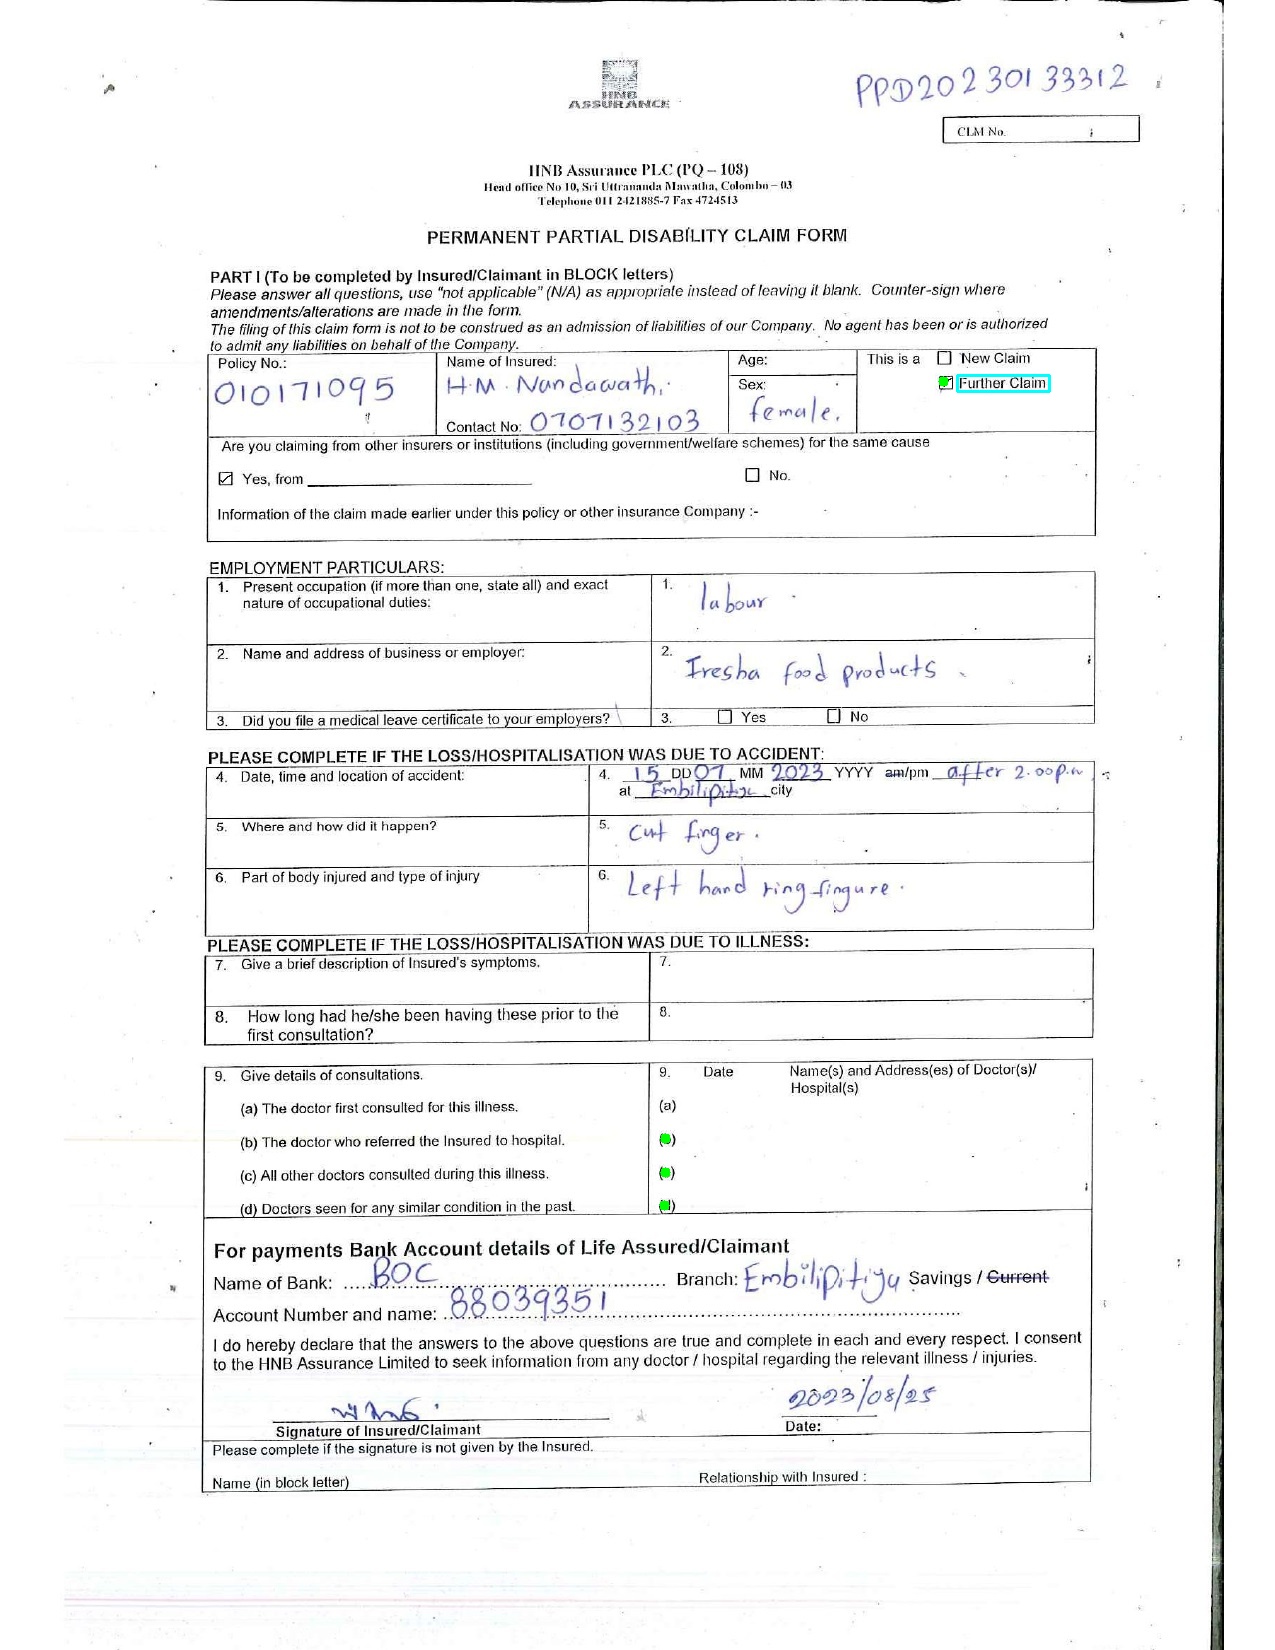 HNB
ASSURANCE
PPD20230133312
CLM No.
HNB Assurance PLC (PQ – 108)
Head office No 10, Sri Uttrananda Mawatha, Colombo – 03
Telephone 011 2421885-7 Fax 4724513
PERMANENT PARTIAL DISABILITY CLAIM FORM
PART I (To be completed by Insured/Claimant in BLOCK letters)
Please answer all questions, use "not applicable" (N/A) as appropriate instead of leaving it blank. Counter-sign where
amendments/alterations are made in the form.
The filing of this claim form is not to be construed as an admission of liabilities of our Company. No agent has been or is authorized
to admit any liabilities on behalf of the Company.
Policy No.: Name of Insured: Age: This is a ☐ New Claim
010171095 H.M. Nandawathi. Sex: ☑ Further Claim
Contact No: 0707132103 female.
Are you claiming from other insurers or institutions (including government/welfare schemes) for the same cause
☑ Yes, from ☐ No.
Information of the claim made earlier under this policy or other insurance Company :-
EMPLOYMENT PARTICULARS:
1. Present occupation (if more than one, state all) and exact 1. labour
nature of occupational duties:
2. Name and address of business or employer: 2. Iresha food products
3. Did you file a medical leave certificate to your employers? 3. ☐ Yes ☐ No
PLEASE COMPLETE IF THE LOSS/HOSPITALISATION WAS DUE TO ACCIDENT:
4. Date, time and location of accident: 4. 15 DD 07 MM 2023 YYYY am/pm after 2.00p.m
at Embilipitiya city
5. Where and how did it happen? 5. Cut finger.
6. Part of body injured and type of injury 6. Left hand ring fingure.
PLEASE COMPLETE IF THE LOSS/HOSPITALISATION WAS DUE TO ILLNESS:
7. Give a brief description of Insured's symptoms. 7.
8. How long had he/she been having these prior to the 8.
first consultation?
9. Give details of consultations. 9. Date Name(s) and Address(es) of Doctor(s)/
Hospital(s)
(a) The doctor first consulted for this illness. (a)
(b) The doctor who referred the Insured to hospital.
(c) All other doctors consulted during this illness.
(d) Doctors seen for any similar condition in the past.
For payments Bank Account details of Life Assured/Claimant
Name of Bank: BOC Branch: Embilipitiya Savings / Current
Account Number and name: 88039351
I do hereby declare that the answers to the above questions are true and complete in each and every respect. I consent
to the HNB Assurance Limited to seek information from any doctor / hospital regarding the relevant illness / injuries.
2023/08/25
Signature of Insured/Claimant Date:
Please complete if the signature is not given by the Insured.
Name (in block letter) Relationship with Insured :